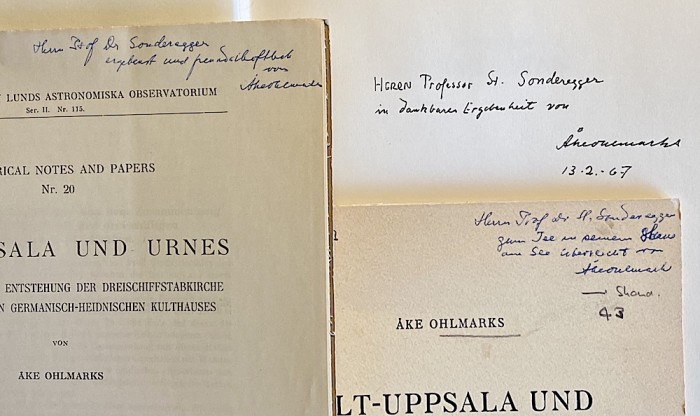 Herrn Prof Dr Sonderegger
ergebenst und freundschaftlich
von
Åke Ohlmarks
LUNDS ASTRONOMISKA OBSERVATORIUM
Ser. II. Nr. 115.
RICAL NOTES AND PAPERS
Nr. 20
SALA UND URNES
ENTSTEHUNG DER DREISCHIFFSTABKIRCHE
N GERMANISCH-HEIDNISCHEN KULTHAUSES
VON
ÅKE OHLMARKS
HERRN Professor St. Sonderegger
in dankbarer Ergebenheit von
Åke Ohlmarks
13.2.-67
Herrn Prof Dr St. Sonderegger
zum Tee in seinem
am See überreicht
Åke Ohlmarks
43
ÅKE OHLMARKS
LT-UPPSALA UND